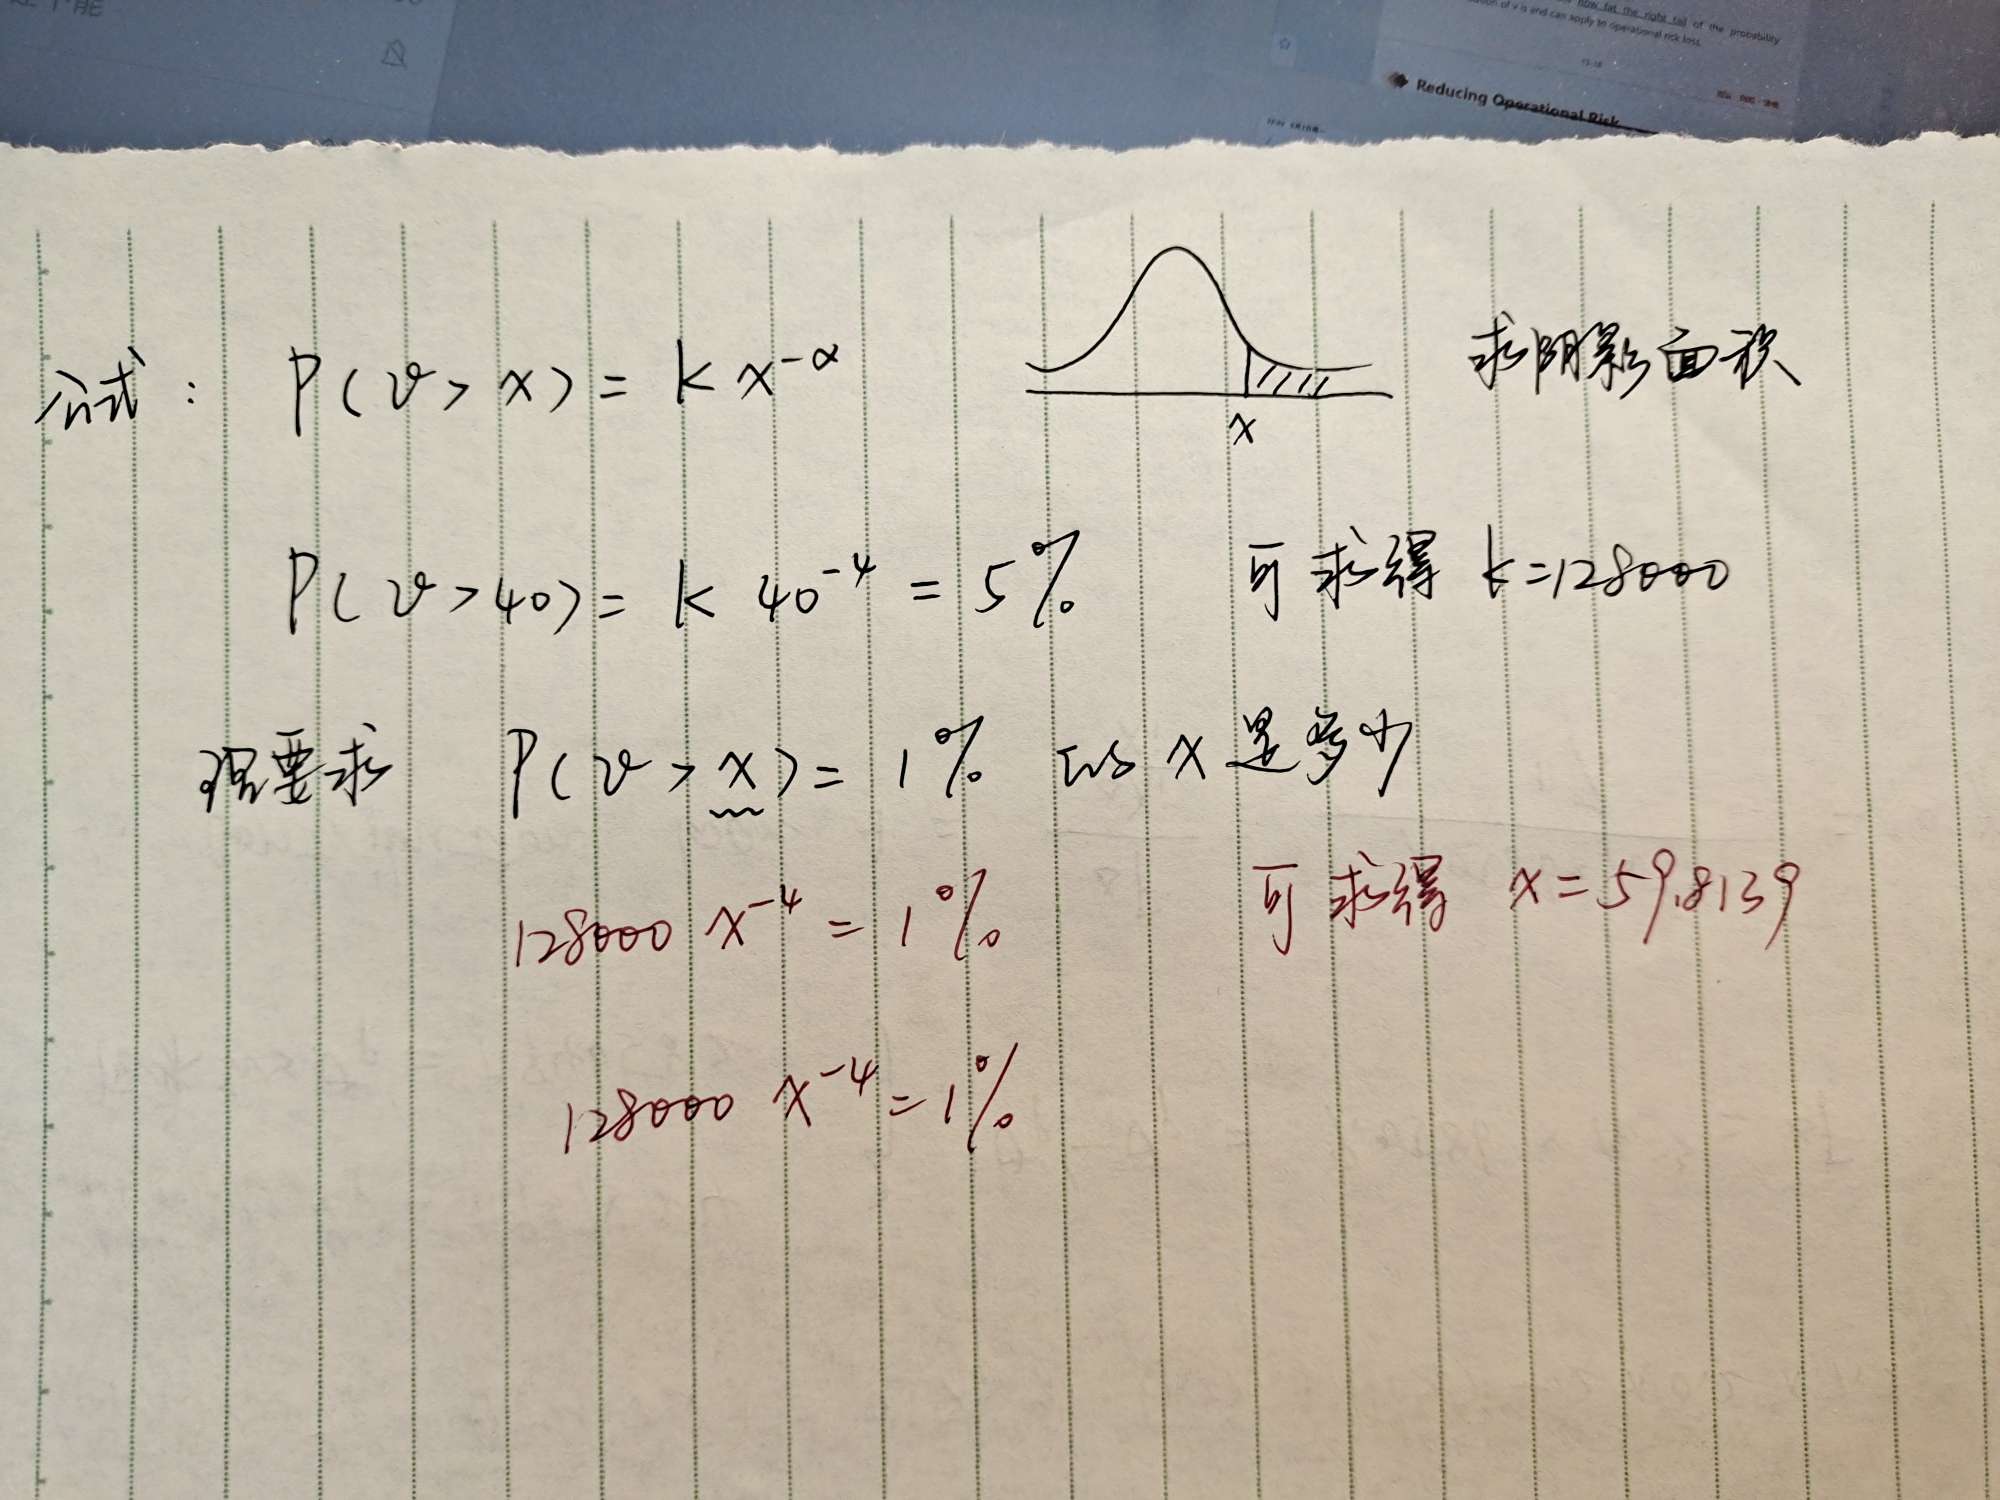 how fat the right tail of the probability
of v is and can apply to operational risk loss.
Reducing Operational Risk
公式: P(v > x) = K x^-α
x
求阴影面积
P(v > 40) = K 40^-4 = 5% 可求得 k=128000
现要求 P(v > x) = 1% 的 x 是多少
128000 x^-4 = 1% 可求得 x = 59.8139
128000 x^-4 = 1%